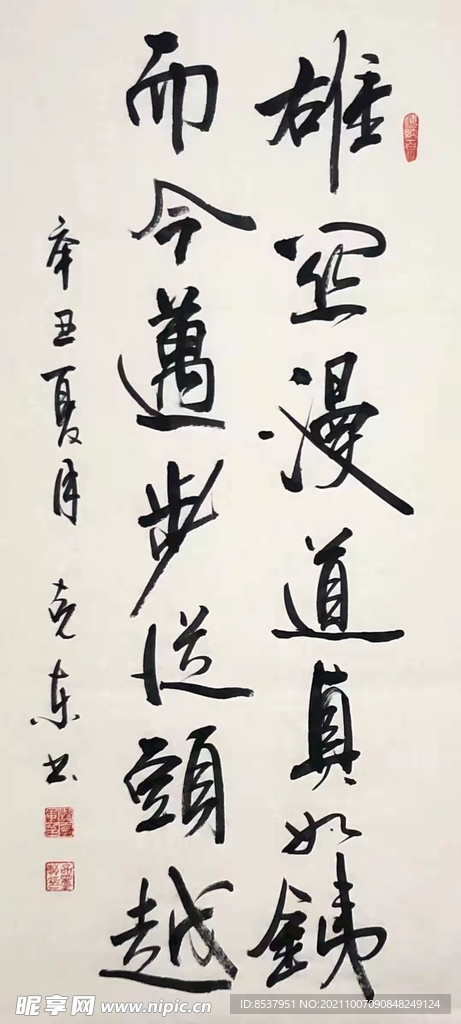 雄関漫道真如鐵
而今邁步從頭越
辛丑夏月 克東书
昵享网 www.nipic.cn
ID:8537951 NO:20211007090848249124